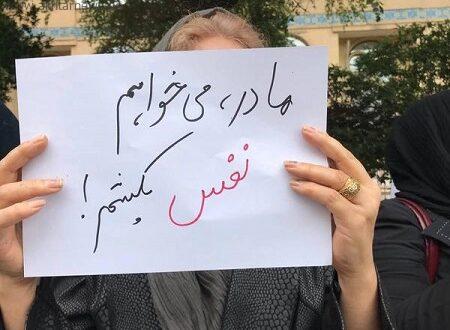 مادر، می‌خواهم
نفس
بکشم!